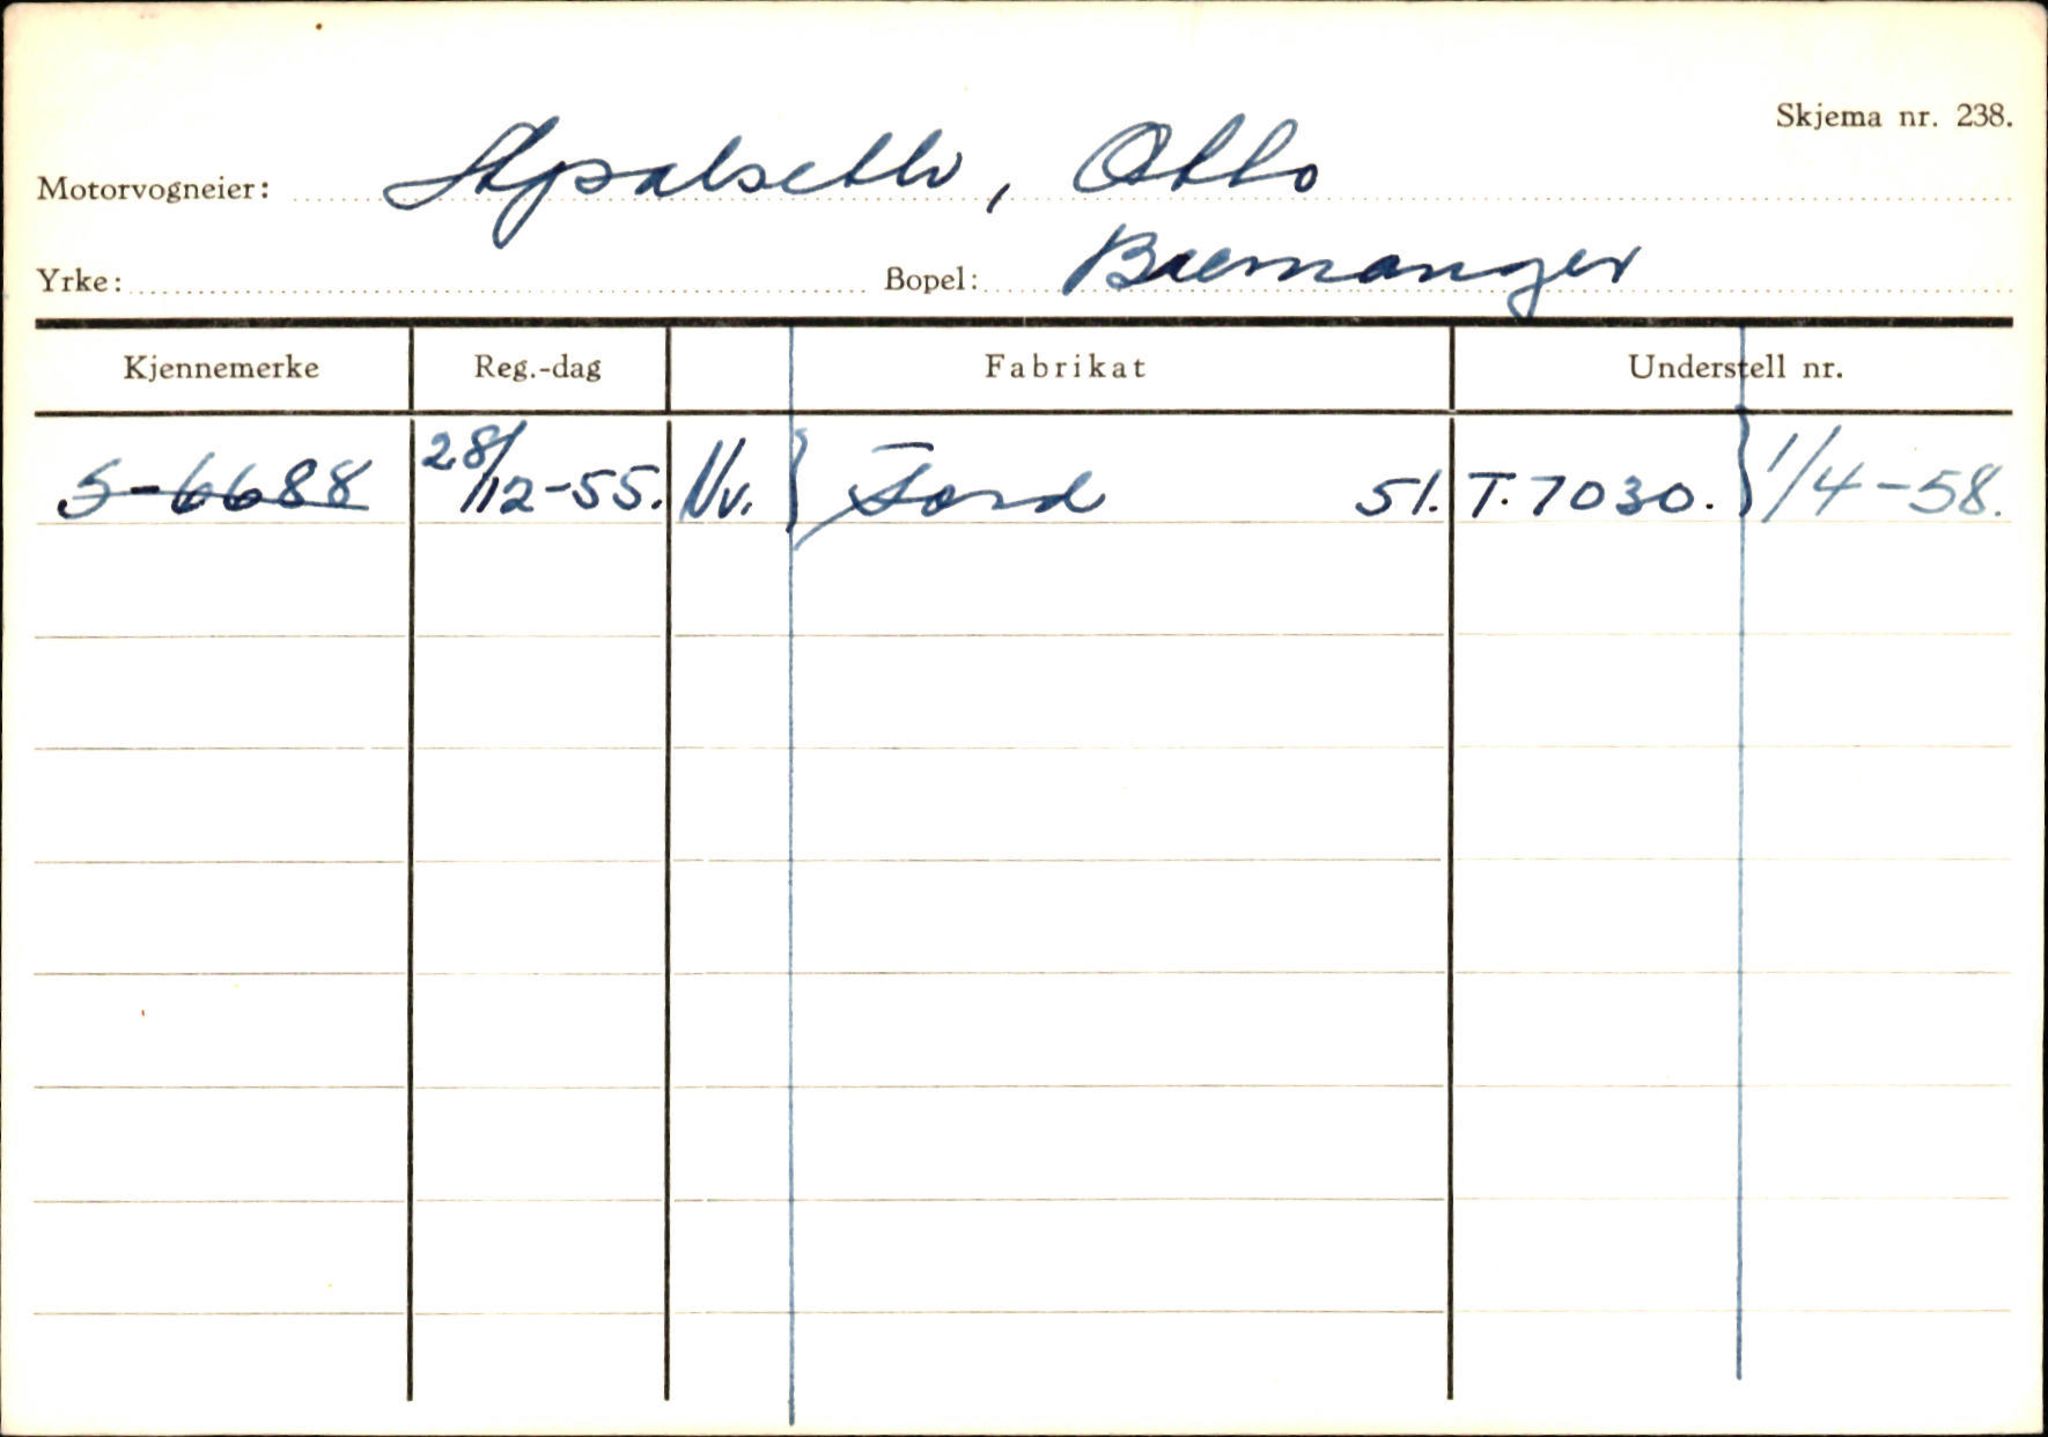 Skjema nr. 238.
Motorvogneier: Apalseth, Otto
Yrke: Bopel: Bremanger
Kjennemerke Reg.-dag Fabrikat Understell nr.
S-6688 28/12-55. Vv. Ford 51. T.7030. 1/4-58.